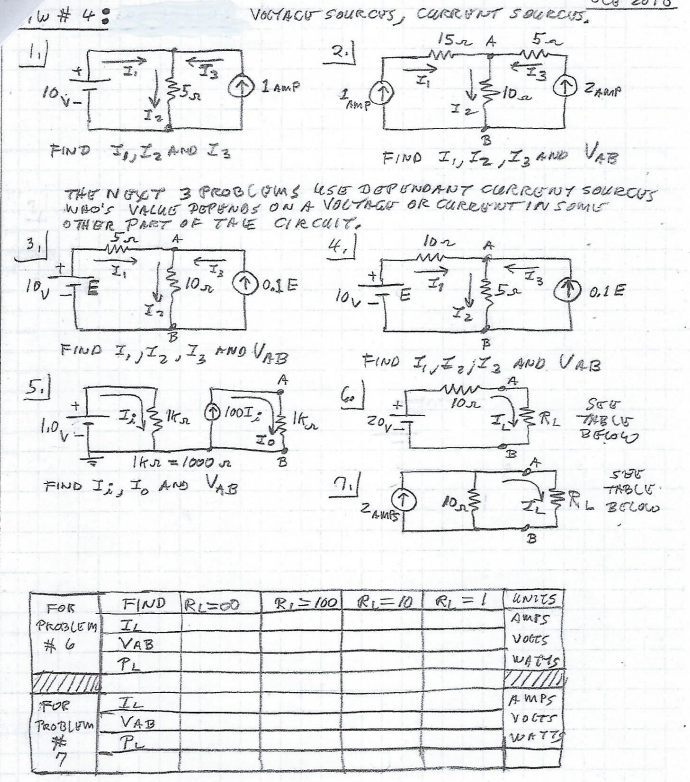 IW # 4: VOLTAGE SOURCES, CURRENT SOURCES.
1.)
10V
+
-
I1
I2
I3
5Ω
1 AMP
FIND I1, I2 AND I3
2.)
15Ω A 5Ω
1 AMP
I1
I2
I3
10Ω
2 AMP
B
FIND I1, I2, I3 AND VAB
THE NEXT 3 PROBLEMS USE DEPENDANT CURRENT SOURCES
WHO'S VALUE DEPENDS ON A VOLTAGE OR CURRENT IN SOME
OTHER PART OF THE CIRCUIT.
3.)
5Ω A
+
10V
-
E
I1
I2
I3
10Ω
0.1E
B
FIND I1, I2, I3 AND VAB
4.)
10Ω A
+
10V
-
E
I1
I2
I3
5Ω
0.1E
B
FIND I1, I2, I3 AND VAB
5.)
+
1.0V
-
Ii
1KΩ
100Ii
Io
1KΩ
A
B
1KΩ = 1000Ω
FIND Ii, Io AND VAB
6.)
+
20V
-
10Ω
A
IL
RL
B
SEE
TABLE
BELOW
7.)
2 AMPS
10Ω
A
IL
RL
B
SEE
TABLE
BELOW
FOR PROBLEM # 6
FIND RL=∞ RL=100 RL=10 RL=1 UNITS
IL AMPS
VAB VOLTS
PL WATTS
FOR PROBLEM # 7
IL AMPS
VAB VOLTS
PL WATTS